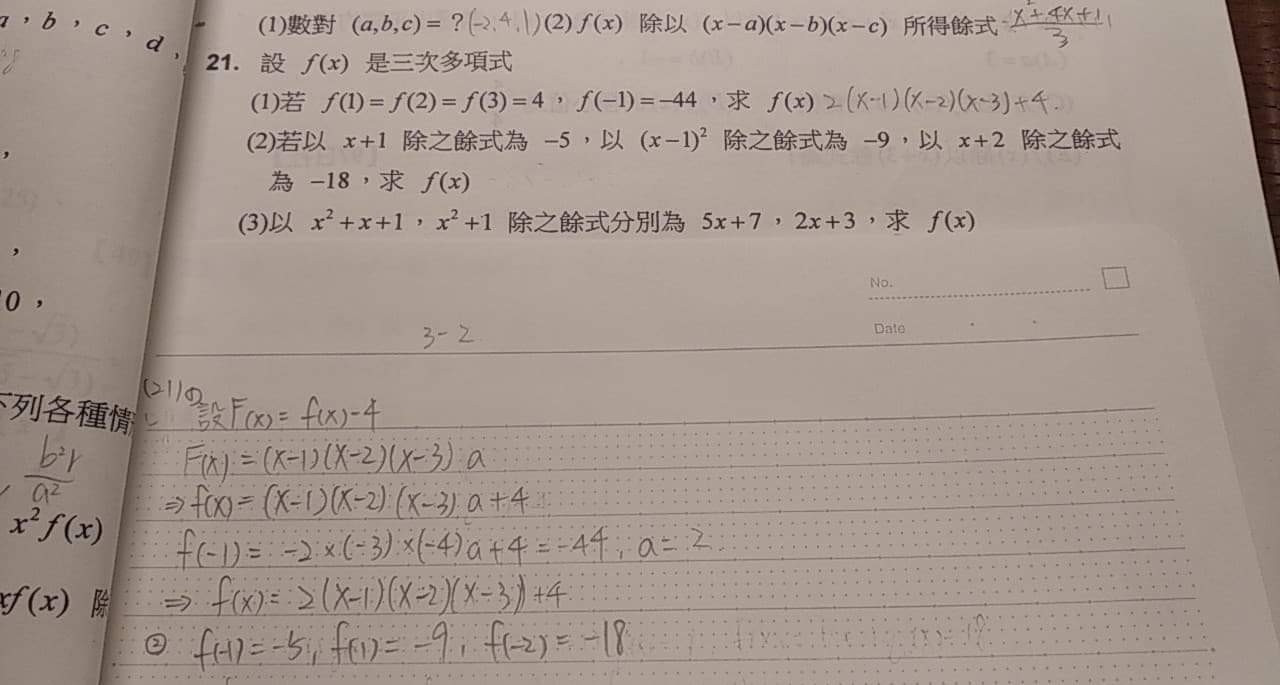 a，b，c，d，
(1)數對 (a,b,c)=？(-2,4,1)(2) f(x) 除以 (x-a)(x-b)(x-c) 所得餘式
21. 設 f(x) 是三次多項式
(1)若 f(1)=f(2)=f(3)=4，f(-1)=-44，求 f(x) 2(x-1)(x-2)(x-3)+4.
(2)若以 x+1 除之餘式為 -5，以 (x-1)² 除之餘式為 -9，以 x+2 除之餘式
為 -18，求 f(x)
(3)以 x²+x+1，x²+1 除之餘式分別為 5x+7，2x+3，求 f(x)
No.
3-2
Date
下列各種情
b²r/a²
x²f(x)
xf(x) 除
設F(x)=f(x)-4
F(x)=(x-1)(x-2)(x-3) a
⇒f(x)=(x-1)(x-2)(x-3) a+4
f(-1)=-2×(-3)×(-4)a+4=-44, a=2
⇒ f(x)=2(x-1)(x-2)(x-3)+4
② f(-1)=-5, f(1)=-9, f(-2)=-18